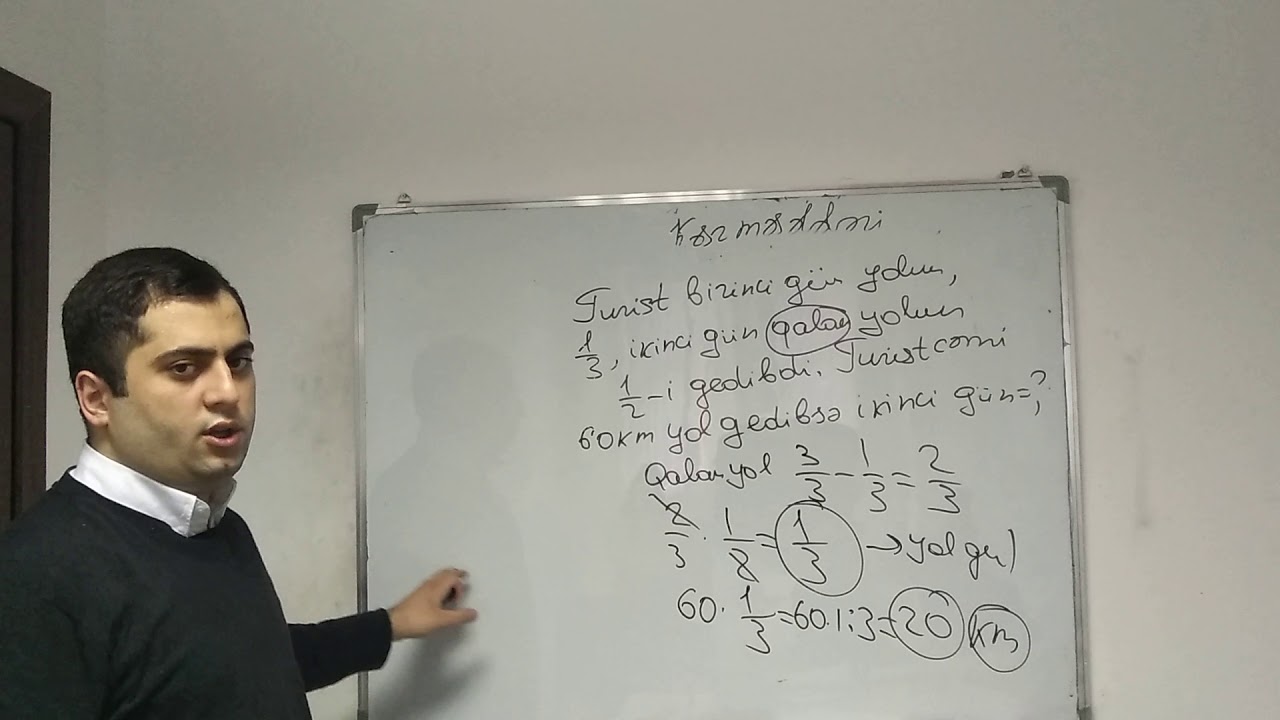 Kəsr məsələsi
Turist birinci gün yolun,
1/3, ikinci gün qalan yolun
1/2-i gedibdi. Turist cəmi
60km yol gedibsə ikinci gün=?
Qalan yol 3/3-1/3=2/3
2/3·1/2=1/3→yol ge)
60·1/3=60·1:3=20 km